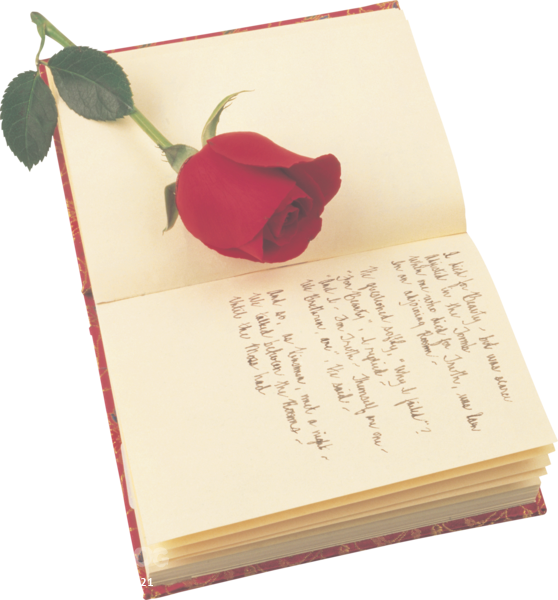 I died for Beauty - but was scarce
Adjusted in the Tomb
When one who died for Truth, was lain
In an adjoining Room
He questioned softly, "Why I failed"?
"For Beauty", I replied -
"And I - For Truth - Themself are one -
We Brethren, are", He said -
And so, as Kinsmen, met a night -
We talked between the Rooms -
Until the Moss had
21